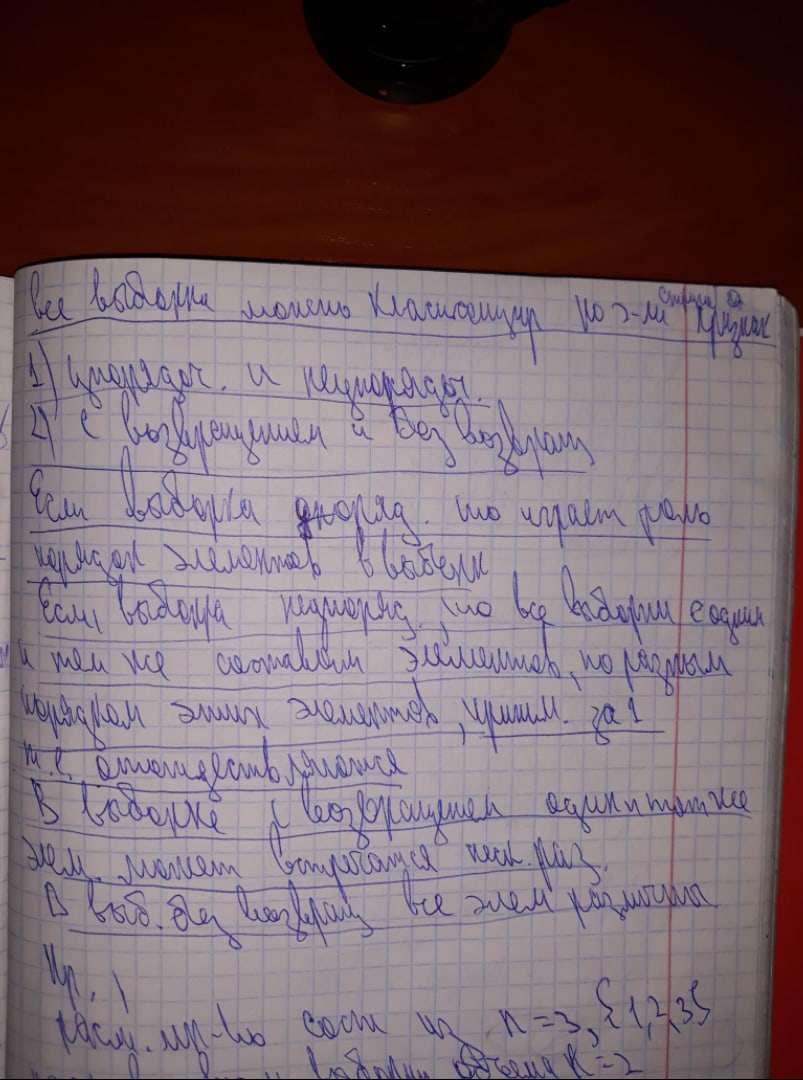 все выборки можно классифицир по э-ли признак
1) упорядоч. и неупорядоч.
2) с возвращением и без возвращ
Если выборка упоряд. то играет роль
порядок элементов в выборк
Если выборка неупоряд., то все выборки с одним
и тем же составом элементов, но разным
порядком этих элементов, приним. за 1
т.е. отождествляются
В выборке с возвращением один и тот же
элем. может встречатся неск. раз.
В выб. без возвращ все элем различны
Пр. 1
расм. мр-во сост из n=3, {1,2,3}
выборки объема k=2